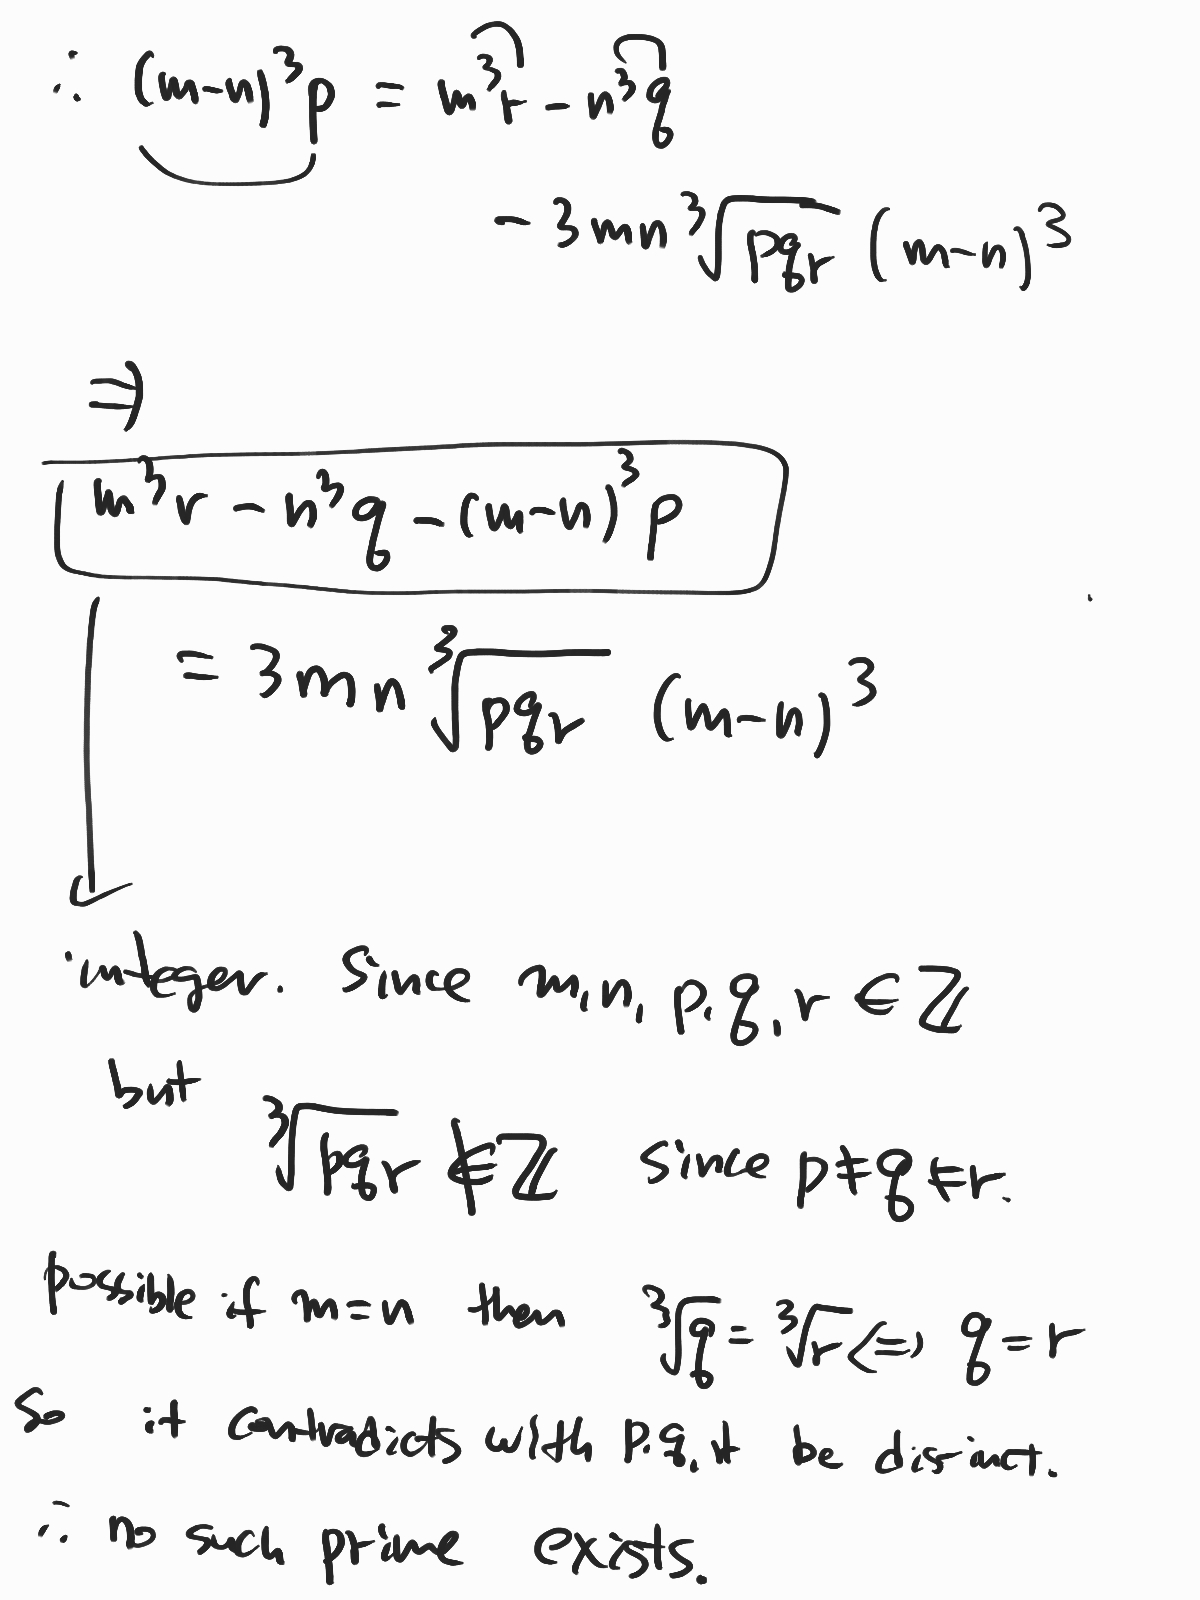 ∴ (m-n)³p = m³r - n³q
- 3mn ³√pqr (m-n)³
⇒
m³r - n³q - (m-n)³p
= 3mn ³√pqr (m-n)³
integer. Since m, n, p, q, r ∈ ℤ
but ³√pqr ∉ ℤ since p ≠ q ≠ r.
possible if m=n then ³√q = ³√r ⇔ q = r
So it contradicts with p, q, r be disinct.
∴ no such prime exists.